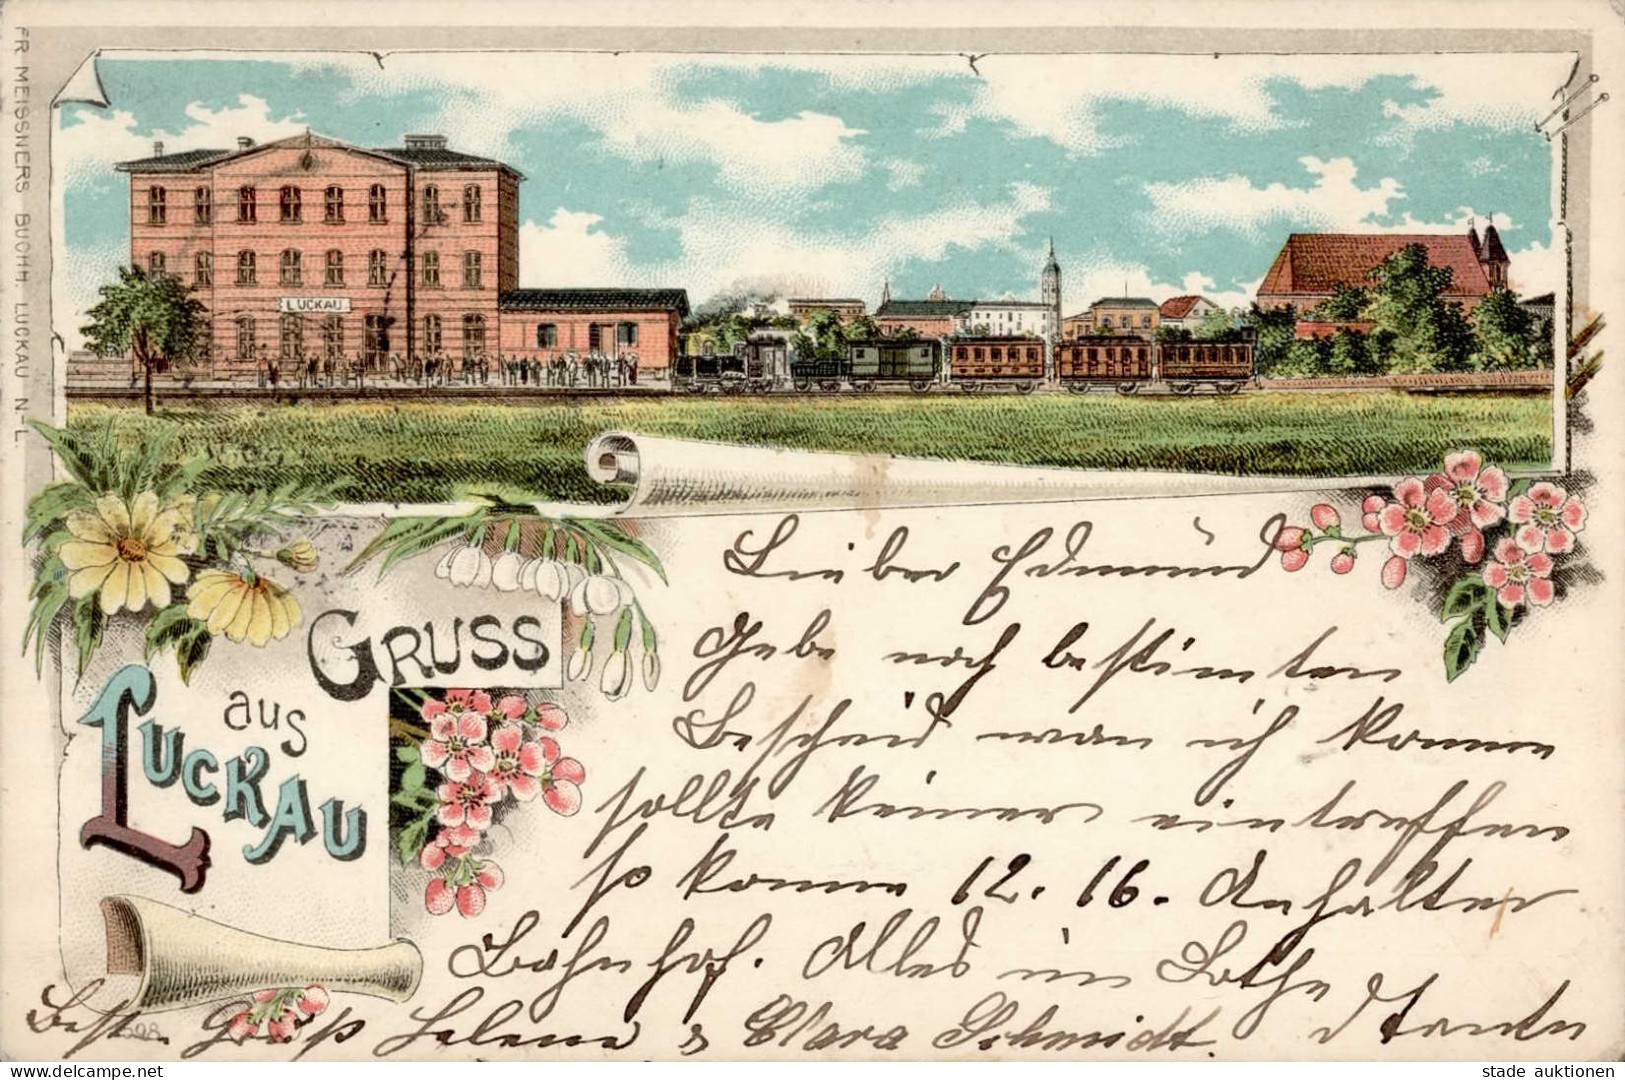 FR. MEISSNERS BUCHH. LUCKAU N.-L.
LUCKAU
GRUSS
aus
LUCKAU
Lieber Edmund
Gebe noch bestimten
Bescheid wan ich komme
sollte keiner eintreffen
so komme 12.16. Anhalter
Bahnhof. Alles im Lothe
Best. Gruß Helene & Clara Schmidt. d Tante
stade auktionen